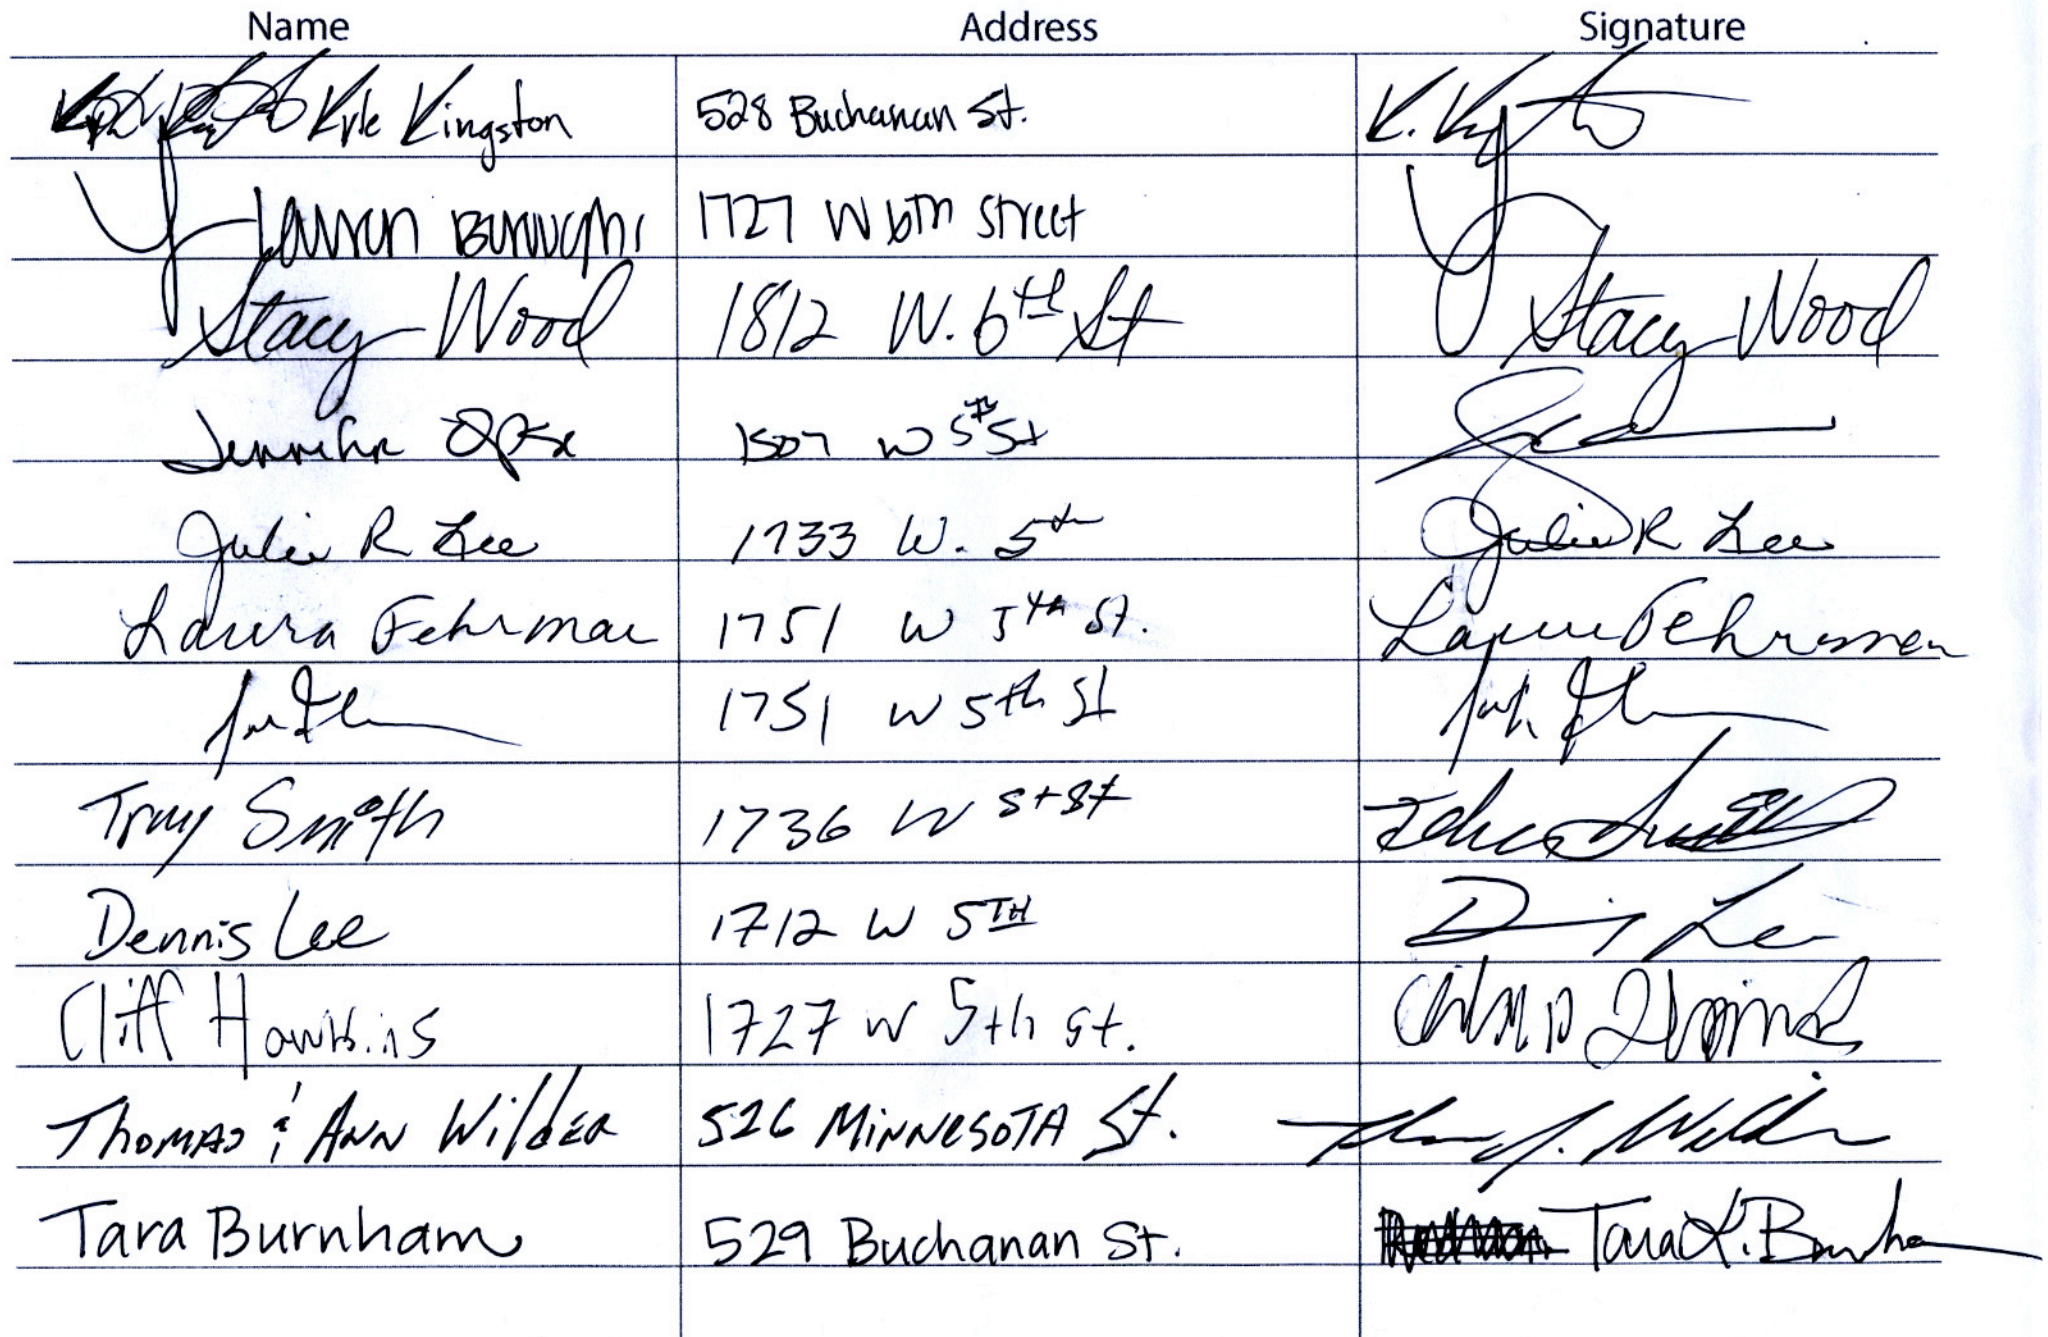 Name Address Signature
Kyle Kingston 528 Buchanan St. K.
Lauren Burroughs 1727 W 6TH Street
Stacy Wood 1812 W. 6th St Stacy Wood
Jennifer 1507 W 5th St
Julie R Lee 1733 W. 5th Julie R Lee
Laura Fehrman 1751 W 5th St. Laura Fehrman
1751 W 5th St
Smith 1736 W 5th St
Dennis Lee 1712 W 5TH Lee
Cliff Hawkins 1727 W 5th St.
Thomas & Ann Wilder 526 Minnesota St. J. Wilder
Tara Burnham 529 Buchanan St. Tara L. Burnham